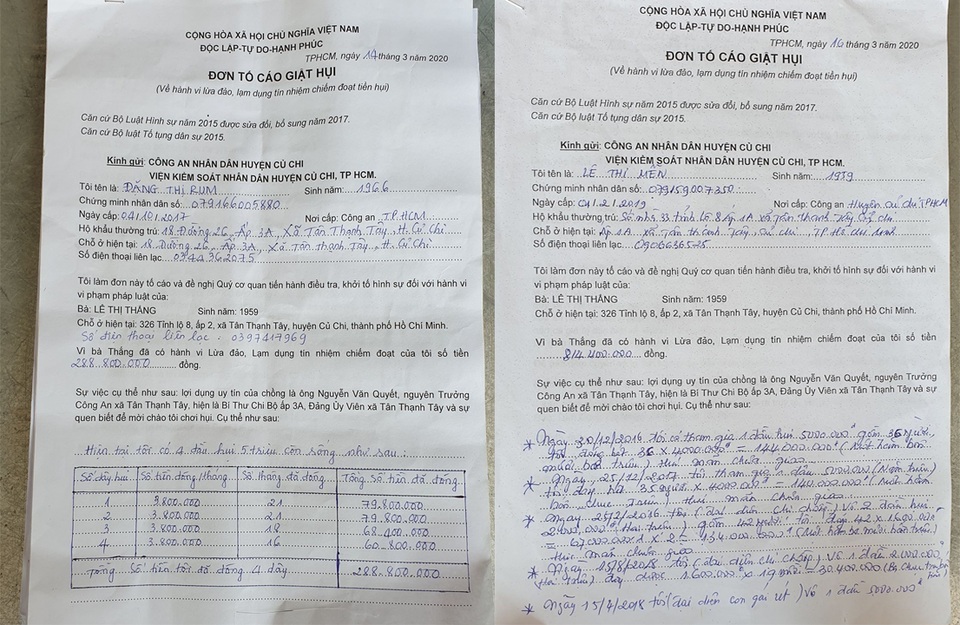 CỘNG HÒA XÃ HỘI CHỦ NGHĨA VIỆT NAM
ĐỘC LẬP-TỰ DO-HẠNH PHÚC
TPHCM, ngày 14 tháng 3 năm 2020
ĐƠN TỐ CÁO GIẬT HỤI
(Về hành vi lừa đảo, lạm dụng tín nhiệm chiếm đoạt tiền hụi)
Căn cứ Bộ Luật Hình sự năm 2015 được sửa đổi, bổ sung năm 2017.
Căn cứ Bộ luật Tố tụng dân sự 2015.
Kính gửi: CÔNG AN NHÂN DÂN HUYỆN CỦ CHI
VIỆN KIỂM SOÁT NHÂN DÂN HUYỆN CỦ CHI, TP HCM.
Tôi tên là: ĐẶNG THỊ RUM Sinh năm: 1966
Chứng minh nhân dân số: 079166005880
Ngày cấp: 04/10/2017 Nơi cấp: Công an TP HCM
Hộ khẩu thường trú: 18 Đường 26, Ấp 3A, Xã Tân Thạnh Tây, H. Củ Chi
Chỗ ở hiện tại: 18 Đường 26, Ấp 3A, Xã Tân Thạnh Tây, H. Củ Chi
Số điện thoại liên lạc 0344362075
Tôi làm đơn này tố cáo và đề nghị Quý cơ quan tiến hành điều tra, khởi tố hình sự đối với hành vi
vi phạm pháp luật của:
Bà: LÊ THỊ THẮNG Sinh năm: 1959
Chỗ ở hiện tại: 326 Tỉnh lộ 8, ấp 2, xã Tân Thạnh Tây, huyện Củ Chi, thành phố Hồ Chí Minh.
Số điện thoại liên lạc: 0397417969
Vì bà Thắng đã có hành vi Lừa đảo, Lạm dụng tín nhiệm chiếm đoạt của tôi số tiền
288.800.000 đồng.
Sự việc cụ thể như sau: lợi dụng uy tín của chồng là ông Nguyễn Văn Quyết, nguyên Trưởng
Công An xã Tân Thạnh Tây, hiện là Bí Thư Chi Bộ ấp 3A, Đảng Ủy Viên xã Tân Thạnh Tây và sự
quen biết để mời chào tôi chơi hụi. Cụ thể như sau:
Hiện tại tôi có 4 đầu hụi 5 triệu còn sống như sau:
Số dây hụi Số tiền đóng/tháng Số tháng đã đóng Tổng số tiền đã đóng
1 3.800.000 21 79.800.000
2 3.800.000 21 79.800.000
3 3.800.000 18 68.400.000
4 3.800.000 16 60.800.000
Tổng số tiền tôi đã đóng 4 dây 288.800.000
CỘNG HÒA XÃ HỘI CHỦ NGHĨA VIỆT NAM
ĐỘC LẬP-TỰ DO-HẠNH PHÚC
TPHCM, ngày 16 tháng 3 năm 2020
ĐƠN TỐ CÁO GIẬT HỤI
(Về hành vi lừa đảo, lạm dụng tín nhiệm chiếm đoạt tiền hụi)
Căn cứ Bộ Luật Hình sự năm 2015 được sửa đổi, bổ sung năm 2017.
Căn cứ Bộ luật Tố tụng dân sự 2015.
Kính gửi: CÔNG AN NHÂN DÂN HUYỆN CỦ CHI
VIỆN KIỂM SOÁT NHÂN DÂN HUYỆN CỦ CHI, TP HCM.
Tôi tên là: LÊ THỊ MẾN Sinh năm: 1959
Chứng minh nhân dân số: 079159007350
Ngày cấp: Nơi cấp: Công an Huyện Củ chi TPHCM
Hộ khẩu thường trú: Số nhà 33 tỉnh lộ 8 ấp 1A xã tân thạnh tây củ chi
Chỗ ở hiện tại: ấp 1A xã tân thạnh tây, củ chi, TP Hồ chí minh
Số điện thoại liên lạc
Tôi làm đơn này tố cáo và đề nghị Quý cơ quan tiến hành điều tra, khởi tố hình sự đối với hành vi
vi phạm pháp luật của:
Bà: LÊ THỊ THẮNG Sinh năm: 1959
Chỗ ở hiện tại: 326 Tỉnh lộ 8, ấp 2, xã Tân Thạnh Tây, huyện Củ Chi, thành phố Hồ Chí Minh.
Vì bà Thắng đã có hành vi Lừa đảo, Lạm dụng tín nhiệm chiếm đoạt của tôi số tiền
814.400.000 đồng.
Sự việc cụ thể như sau: lợi dụng uy tín của chồng là ông Nguyễn Văn Quyết, nguyên Trưởng
Công An xã Tân Thạnh Tây, hiện là Bí Thư Chi Bộ ấp 3A, Đảng Ủy Viên xã Tân Thạnh Tây và sự
quen biết để mời chào tôi chơi hụi. Cụ thể như sau:
* Ngày 30/12/2016 tôi có tham gia 1 đầu hụi 5000.000đ gồm 36 người,
36 x 4000.000đ = 144.000.000đ
hụi mãn chưa giao
* Ngày 25/12/2017 tôi tham gia 1 đầu 5000.000
35 người x 4000.000đ =
hụi mãn chưa giao
* Ngày 25/12/2016 tôi (đại diện chị chồng) vô 2 đầu hụi
2.000.000đ (hai triệu) gồm 42 người. 42 x 1600.000đ
hụi mãn chưa giao
* Ngày 15/8/2018 tôi (đại diện chị chồng) vô 1 đầu 2.000.000đ
(Hai triệu) đóng được 1.600.000đ x 19 = 30.400.000
* Ngày 15/4/2018 tôi (đại diện con gái út) vô 1 đầu 5000.000đ